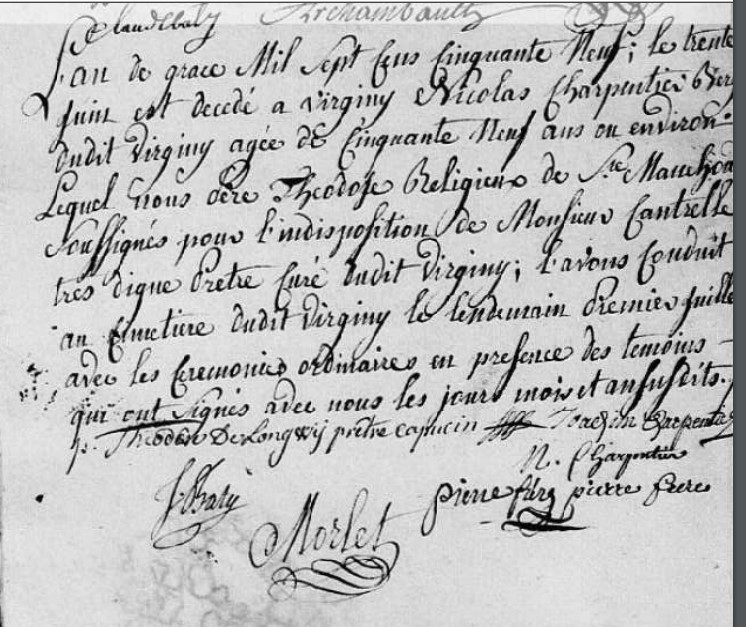 Claude baly Archambault
L'an de grace Mil sept Cens Cinquante Neuf; les trente
Juin est decedé a virginy Nicolas Charpentier Ber
dudit virginy agée de Cinquante Neuf ans ou environ
Lequel nous père Theodose Religieux de Ste
soussignés pour l'indisposition de Monsieur Cantrelle
tres digne Pretre Curé dudit virginy; l'avons Conduit
au Cimetiere dudit virginy le lendemain Premier Juille
avec les Ceremonies ordinaires en presence des temoins
qui ont Signés avec nous les jours mois et an susdits.
p. Theodose De Longwij prêtre capucin Joachim Charpentie
N. Charpentier
J Baly Morlet pierre pierre frere